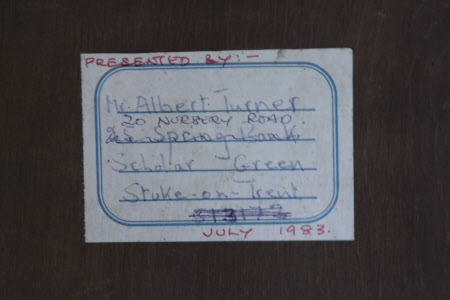 PRESENTED BY:-
Mr. Albert Turner
20 NURSERY ROAD
Spring Bank
Scholar Green
Stoke-on-Trent
JULY 1983.